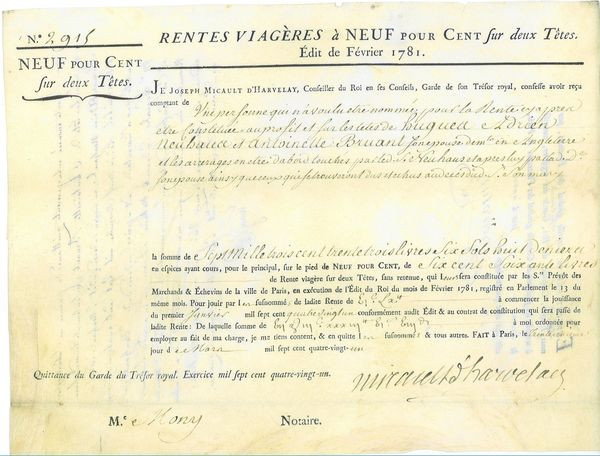 N.° 2915
NEUF POUR CENT
sur deux Têtes.
RENTES VIAGÈRES à NEUF POUR CENT sur deux Têtes.
Édit de Février 1781.
JE JOSEPH MICAULT D'HARVELAY, Conseiller du Roi en ses Conseils, Garde de son Trésor royal, confesse avoir reçu
comptant de Une personne qui n'a voulu etre nommée pour la Rente cy apres
etre constituée au profit et sur les tetes de
et Antoinette Bruant son epouse dem.t en Angleterre
et les arrerages en etre d'abord touchés par led. S. et apres luy par lad. D.e
son epouse ainsy que ceux qui se trouveront dus et echus au deces dud. S. son mary
la somme de Sept Mille trois cent trente trois livres Six Sols huit deniers
en espèces ayant cours, pour le principal, sur le pied de NEUF POUR CENT, de Six cent Soixante livres
de Rente viagère sur deux Têtes, sans retenue, qui leur sera constituée par les S.rs Prévôt des
Marchands & Échevins de la ville de Paris, en exécution de l'Édit du Roi du mois de Février 1781, registré en Parlement le 13 du
même mois. Pour jouir par les susnommés de ladite Rente de à commencer la jouissance
du premier Janvier mil sept cent quatre vingt un conformément audit Édit & au contrat de constitution qui sera passé de
ladite Rente: De laquelle somme de à moi ordonnée pour
employer au fait de ma charge, je me tiens content, & en quitte les susnommés & tous autres. FAIT à Paris, le
jour de Mars mil sept cent quatre-vingt-un
Quittance du Garde du Trésor royal. Exercice mil sept cent quatre-vingt-un.
micault d'harvelay
M.e Mony Notaire.